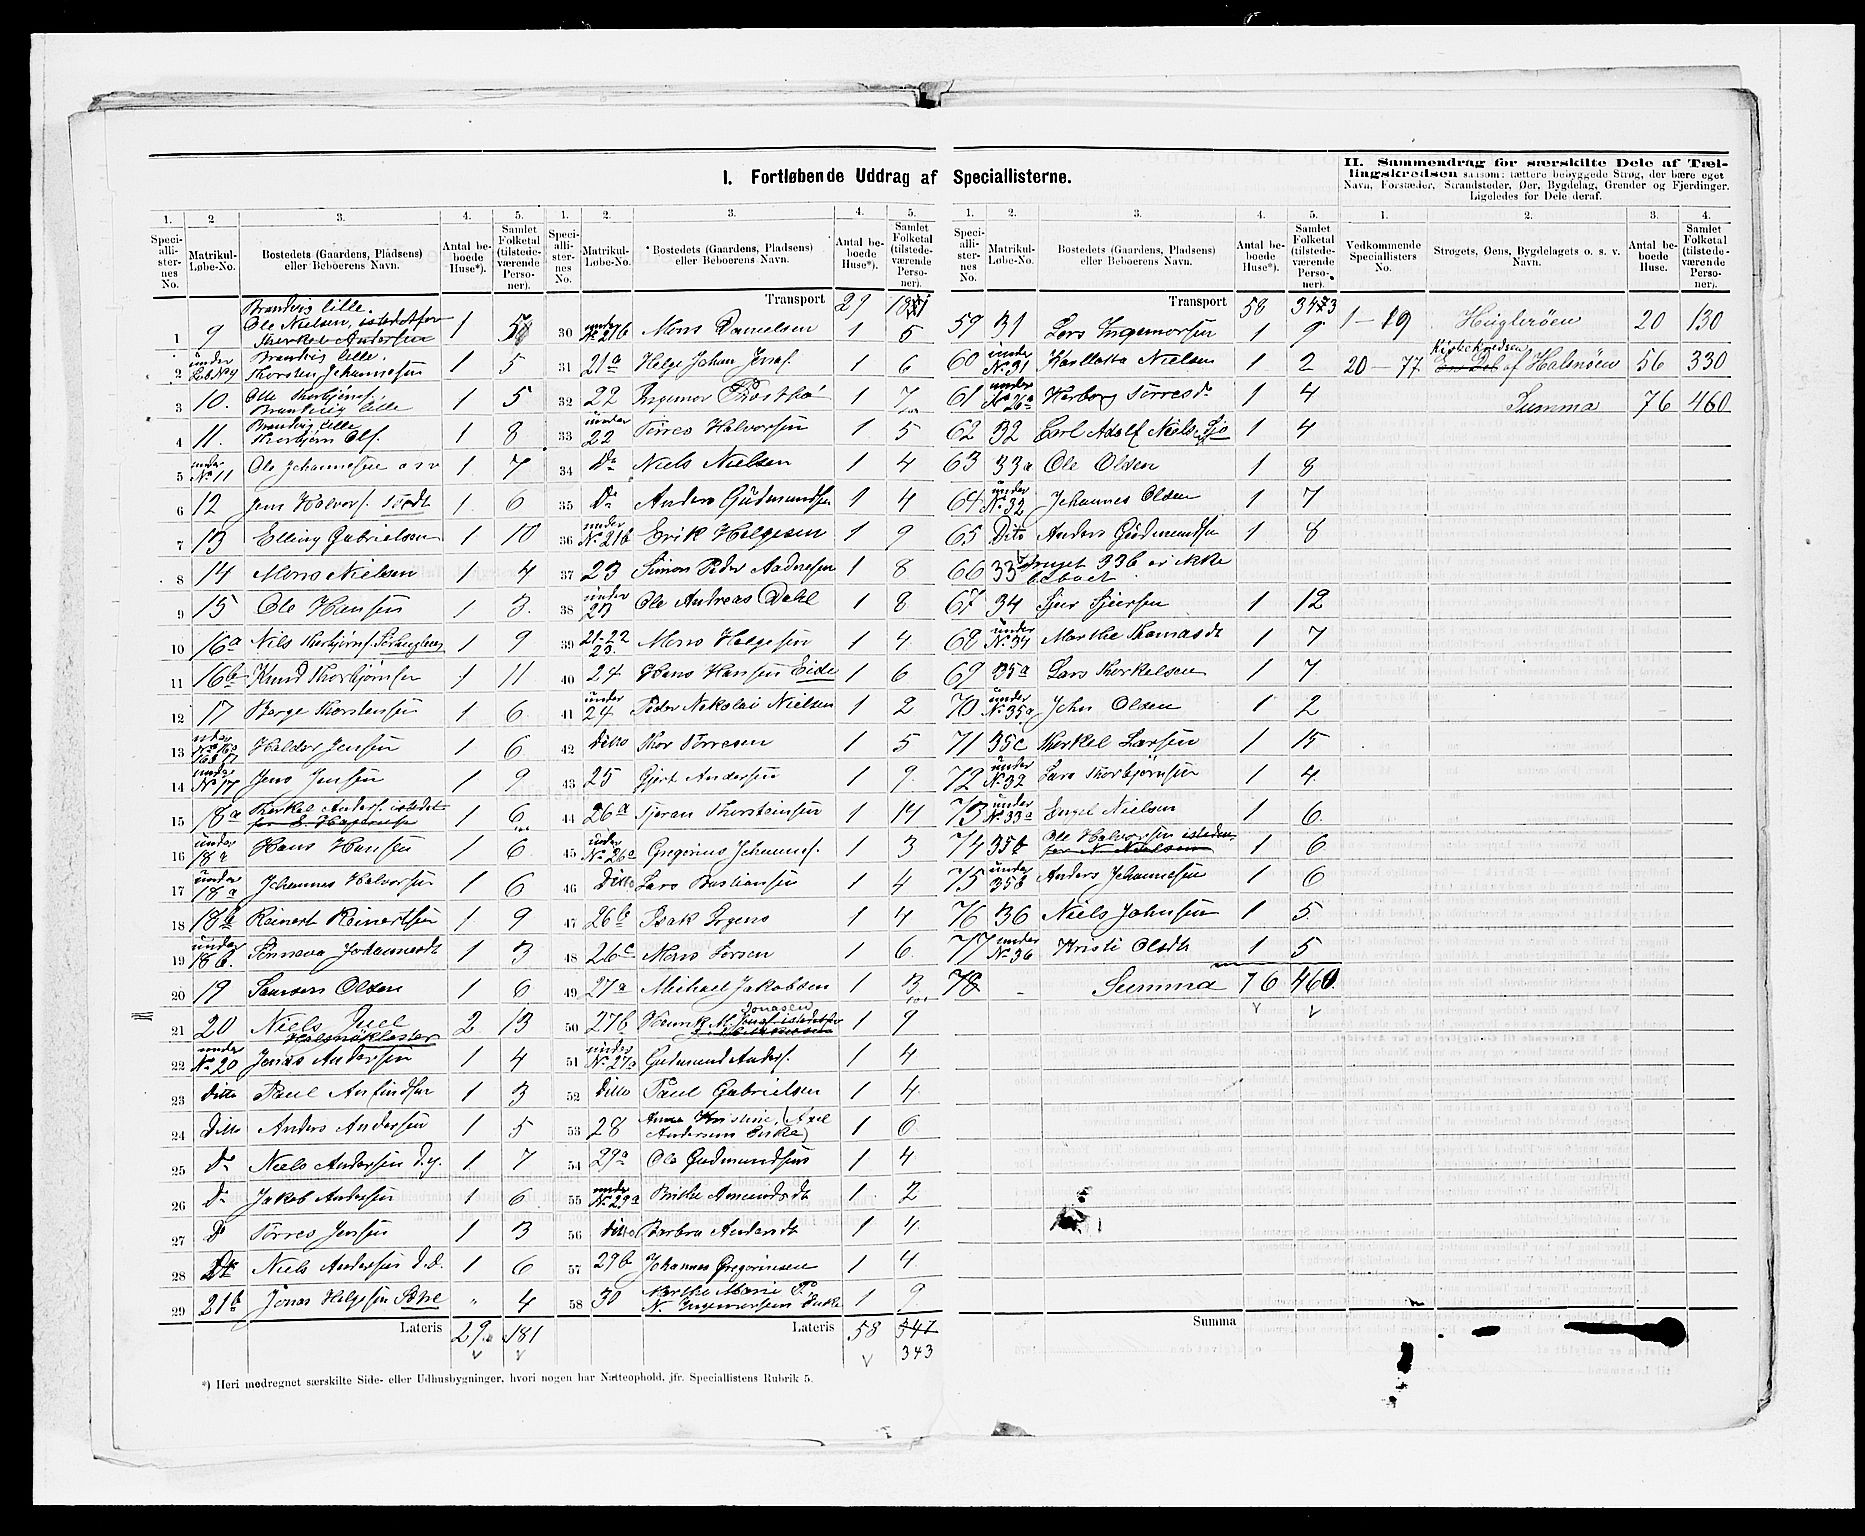 I. Fortløbende Uddrag af Speciallisterne.
II. Sammendrag for særskilte Dele af Tæl-
lingskredsen saasom: tættere bebyggede Strøg, der bære eget
Navn, Forstæder, Strandsteder, Øer, Bygdelag, Grender og Fjerdinger.
Ligeledes for Dele deraf.
1. 2 3. 4. 5. 1. 2. 3. 4. 5. 1. 2. 3. 4. 5. 1. 2. 3. 4.
Speci-alli-ster-nes No. Matrikul-Løbe-No. Bostedets (Gaardens, Pladsens) eller Beboerens Navn. Antal be-boede Huse*). Samlet Folketal (tilstede-værende Perso-ner).
Speci-alli-ster-nes No. Matrikul-Løbe-No. Bostedets (Gaardens, Pladsens) eller Beboerens Navn. Antal be-boede Huse*). Samlet Folketal (tilstede-værende Perso-ner).
Speci-alli-ster-nes No. Matrikul-Løbe-No. Bostedets (Gaardens, Pladsens) eller Beboerens Navn. Antal be-boede Huse*). Samlet Folketal (tilstede-værende Perso-ner).
Vedkommende Speciallisters No. Strøgets, Øens, Bygdelagets o. s. v. Navn. Antal be-boede Huse. Samlet Folketal (tilstede-værende Perso-ner).
Brandvig lille.
1 9 Ole Nielsen, istedetfor Therkel Andersen 1 5
2 under Lob No 9 Brandvig lille. Thorsten Johannesen 1 5
3 10. Olle Thorbjørns. Brandvig lille 1 5
4 11. Brandvig lille Thorbjørn Ols. 1 8
5 under No 11 Ole Johannesen 1 7
6 12 Jens Halvors. 1 6
7 13 Elling Gabrielsen 1 10
8 14 Mons Nielsen 1 4
9 15 Ole Hansen 1 3.
10 16a Nils Thorbjørns. 1 9
11 16b Knud Thorbjørnsen 1 11
12 17 Børge Thorstensen 1 6
13 Haldor Jensen 1 6
14 under No 17 Jens Jensen 1 9
15 18a Therkel Anders. istedet for 1 6
16 under 18a Hans Hansen 1 6
17 under 18a Johannes Halvorsen 1 6
18 18b Reinert Reinertsen 1 9
19 under 18b. Johannesdt 1 3
20 19 Samson Olsen 1 6
21 20 Niels Juel Halsnøkloster 2 13
22 under No 20 Jonas Andersen 1 4
23 Ditto Paul Anfindsen 1 3
24 Ditto Anders Andersen 1 5
25 Do Niels Andersen d.y. 1 7
26 Do Jakob Andersen 1 6
27 Do Tørres Jensen 1 3
28 Do Niels Andersen d.æ. 1 6
29 21b Jonas Helgesen " 4
Lateris 29. 181
Transport 29 181
30 under No 21b Mons Danielsen 1 5
31 21a Helge Johan Josef 1 6
32 22 Ingemor 1 7
33 under 22 Tørres Halvorsen 1 5
34 Do Niels Nielsen 1 4
35 Do Anders Gudmundsen 1 4
36 under No 21b Erik Helgesen 1 9
37 23 Simon Peder Aadnesen 1 8
38 under 23 Ole Andreas Dahl 1 8
39 21-22 23 Mons Helgesen 1 4
40 24 Hans Hansen Eide 1 6
41 under 24 Peder Nikolai Nielsen 1 2
42 Ditto Thor Tørresen 1 5
43 25 Gjert Andersen 1 9.
44 26a Gjeran Thorsteinsen 1 14
45 under No 26a Gregorius Johannes. 1 3
46 Ditto Lars Bastiansen 1 4
47 26b Isak 1 4
48 26c Mons Larsen 1 6.
49 27a Michael Jakobsen 1 3
50 27b Henrik M. Jonasen istedetfor 1 9
51 under No 27a Gudmund Anders. 1 4
52 Ditto Paul Gabrielsen 1 4
53 28 Anna Kristine, (Axel Andersens Enke) 1 6
54 29a Ole Gudmundsen 1 4
55 under No 29a Brithe Amundsdt 1 2
56 Ditto Barbra Andersdt 1 4
57 29b Johannes Gregoriusen 1 4
58 30 Marthe Marie P. N. Ingemorsens Enke 1 9
Lateris 58 347
343
Transport 58 343
59 31 Lars Ingemorsen 1 9
60 under No 31 Karllotta Nielsen 1 2
61 under No 26a Herborg Tørresdr 1 4
62 32 Carl Adolf Niels. 1 4
63 33a Ole Olsen 1 8
64 under No 32 Johannes Olsen 1 7
65 Dito Anders Gudmundsen 1 8
66 33b Bruget 33b er ikke beboet
67 34 Sjur Sjursen 1 12
68 under No 34 Marthe Thomasdt 1 7
69 35a Lars Therkelsen 1 7
70 under No 35a John Olsen 1 2
71 35c Therkel Larsen 1 15
72 under No 32 Lars Thorbjørnsen 1 4
73 under No 33a Engel Nielsen 1 6
74 35b Ole Halvorsen istedenfor N. Nielsen 1 6
75 under 35b Anders Johannesen 1 6
76 36 Niels Johnsen 1 5
77 under No 36 Kristi Olsdt 1 5
78 Summa 76 460
Summa
1 - 19 Huglerøen 20 130
20 - 77. af Halsnøen 56 330
Summa 76 460
*) Heri medregnet særskilte Side- eller Udhusbygninger, hvori nogen har Natteophold, jfr. Speciallistens Rubrik 5.